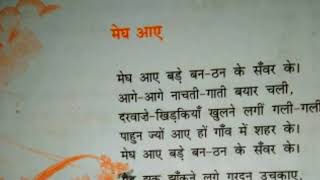 मेघ आए
मेघ आए बड़े बन-ठन के सँवर के।
आगे-आगे नाचती-गाती बयार चली,
दरवाजे-खिड़कियाँ खुलने लगीं गली-गली
पाहुन ज्यों आए हों गाँव में शहर के।
मेघ आए बड़े बन-ठन के सँवर के।
झुक झाँकने लगे गरदन उचकाए,